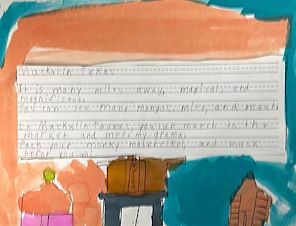 Mackatin Texas
It is many miles away, magical, and
magnificent.
You can see many mangos, mice, and
In Mackatin Texas you can march to the
market and meet my grama.
Pack your monky and mask
befor